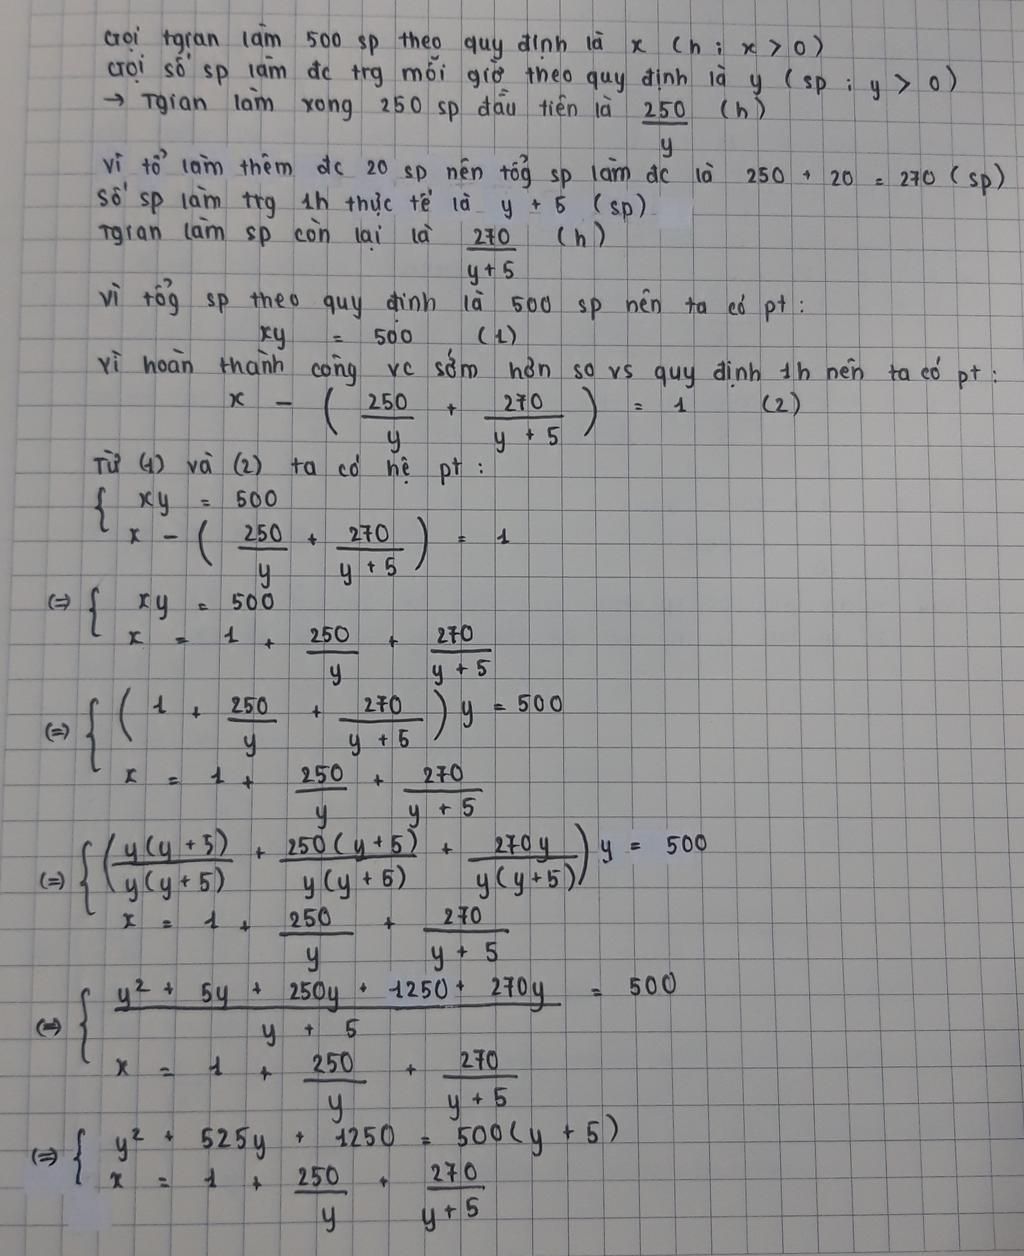 Gọi tgian làm 500 sp theo quy định là x (h; x > 0)
Gọi số sp làm đc trg mỗi giờ theo quy định là y (sp; y > 0)
→ Tgian làm xong 250 sp đầu tiên là 250/y (h)
Vì tổ làm thêm đc 20 sp nên tổg sp làm đc là 250 + 20 = 270 (sp)
Số sp làm trg 1h thực tế là y + 5 (sp)
Tgian làm sp còn lại là 270/(y+5) (h)
Vì tổg sp theo quy định là 500 sp nên ta có pt:
xy = 500 (1)
Vì hoàn thành công vc sớm hơn so vs quy định 1h nên ta có pt:
x - (250/y + 270/(y + 5)) = 1 (2)
Từ (1) và (2) ta có hệ pt:
{ xy = 500
x - (250/y + 270/(y + 5)) = 1
(=) { xy = 500
x = 1 + 250/y + 270/(y + 5)
(=) { (1 + 250/y + 270/(y + 5)) y = 500
x = 1 + 250/y + 270/(y + 5)
(=) { (y(y + 5)/y(y + 5) + 250(y + 5)/y(y + 5) + 270y/y(y+5)) y = 500
x = 1 + 250/y + 270/(y + 5)
(=) { (y² + 5y + 250y + 1250 + 270y)/(y + 5) = 500
x = 1 + 250/y + 270/(y + 5)
(=) { y² + 525y + 1250 = 500(y + 5)
x = 1 + 250/y + 270/(y+5)